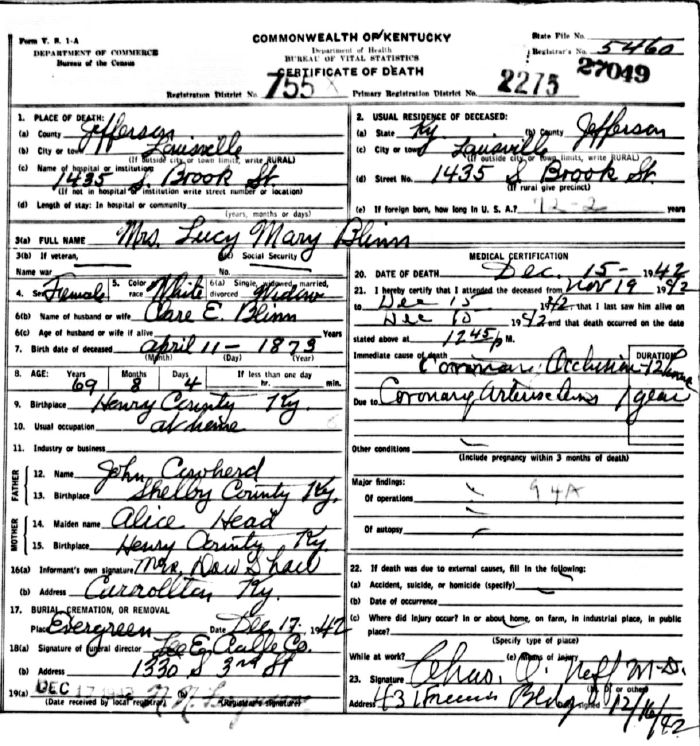 Form V. S. 1-A
DEPARTMENT OF COMMERCE
Bureau of the Census
COMMONWEALTH OF KENTUCKY
Department of Health
BUREAU OF VITAL STATISTICS
CERTIFICATE OF DEATH
State File No.
Registrar's No. 5460
27049
Registration District No. 755
Primary Registration District No. 2275
1. PLACE OF DEATH:
(a) County Jefferson
(b) City or town Louisville
(If outside city or town limits, write RURAL)
(c) Name of hospital or institution
1435 S. Brook St.
(If not in hospital or institution write street number or location)
(d) Length of stay: In hospital or community
(years, months or days)
2. USUAL RESIDENCE OF DECEASED:
(a) State Ky (b) County Jefferson
(c) City or town Louisville
(If outside city or town limits, write RURAL)
(d) Street No. 1435 S Brook St.
(If rural give precinct)
(e) If foreign born, how long in U. S. A.? years
3(a) FULL NAME Mrs. Lucy Mary Blinn
3(b) If veteran,
Name war
(c) Social Security
No.
4. Sex Female 5. Color race White 6(a) Single, widowed, married, divorced Widow
6(b) Name of husband or wife E. Blinn
6(c) Age of husband or wife if alive Years
7. Birth date of deceased April 11 - 1873
(Month) (Day) (Year)
8. AGE: Years Months Days If less than one day
69 8 4 hr. min.
9. Birthplace Henry County Ky.
10. Usual occupation at home
11. Industry or business
FATHER
12. Name John
13. Birthplace Shelby County Ky.
MOTHER
14. Maiden name Alice Head
15. Birthplace Henry County Ky.
16(a) Informant's own signature Mrs.
(b) Address Carrollton Ky.
17. BURIAL, CREMATION, OR REMOVAL
Place Evergreen Date Dec 17 1942
18(a) Signature of funeral director Lee E. Co.
(b) Address 1330 S 3rd St
19(a) DEC 17 (b)
(Date received by local registrar) (Registrar's signature)
MEDICAL CERTIFICATION
20. DATE OF DEATH Dec. 15 - 1942
21. I hereby certify that I attended the deceased from Nov 19 1942
to Dec 15 1942, that I last saw him alive on
Dec 1942 and that death occurred on the date
stated above at 1245 P M.
Immediate cause of death Coronary Occlusion 12 hours
DURATION
Due to Coronary Arteriosclerosis 1 year
Other conditions
(Include pregnancy within 3 months of death)
Major findings:
Of operations 94A
Of autopsy
22. If death was due to external causes, fill in the following:
(a) Accident, suicide, or homicide (specify)
(b) Date of occurrence
(c) Where did injury occur? In or about home, on farm, in industrial place, in public
place?
(Specify type of place)
While at work? (e) Means of injury
23. Signature Chas. Neff M.D.
(M. D. or other)
Address Bldg Date signed 12/16/42